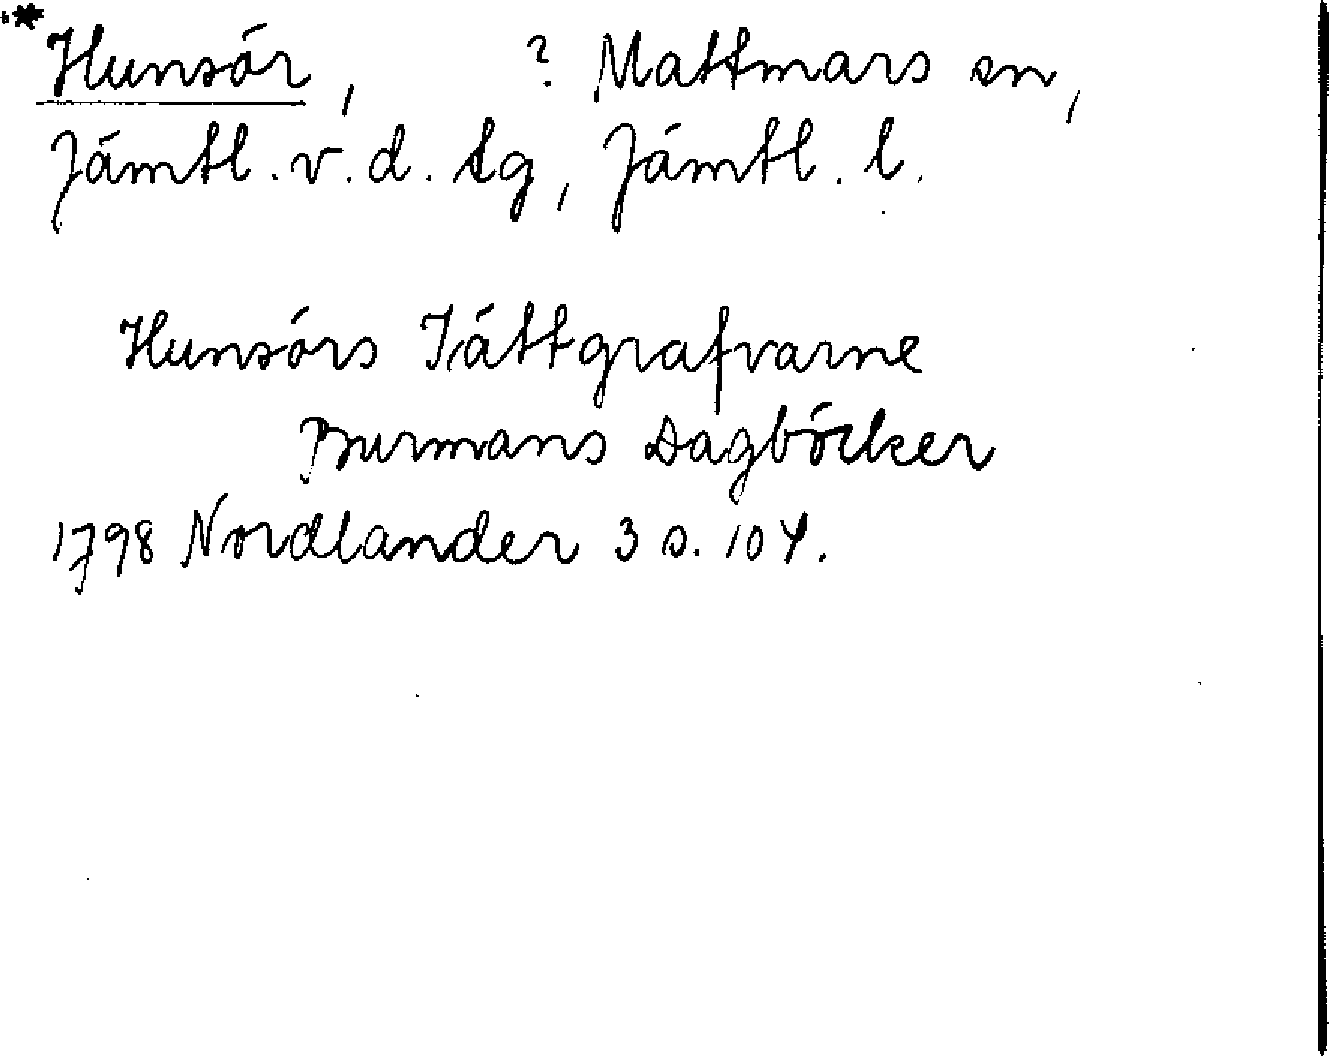 * Hunsör, ? Mattmars sn,
Jämtl. v. d. tg, Jämtl. l.
Hunsörs Tättgrafvarne
Burmans Dagböcker
1798 Nordlander 3 s. 104.